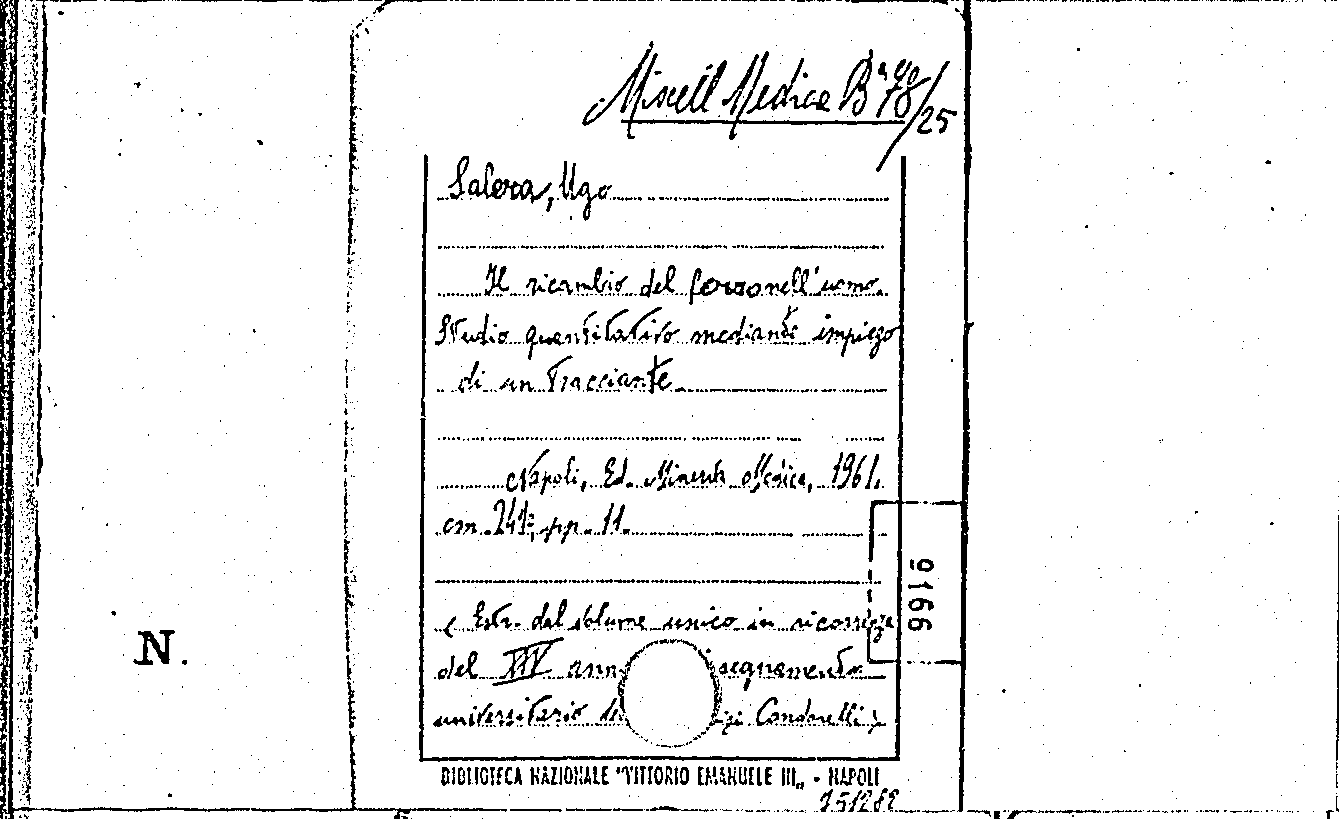 Miscell Medica Bª 78/25
Salera, Ugo
Il ricambio del ferro nell'uomo.
Studio quantitativo mediante impiego
di un Tracciante.
Napoli, Ed. Minerva Medica, 1961.
cm. 24½; pp. 11.
( Estr. dal volume unico in ricorrenza
del ann segnamento
universitario Condorelli )
9166
N.
BIBLIOTECA NAZIONALE "VITTORIO EMANUELE III„ - NAPOLI